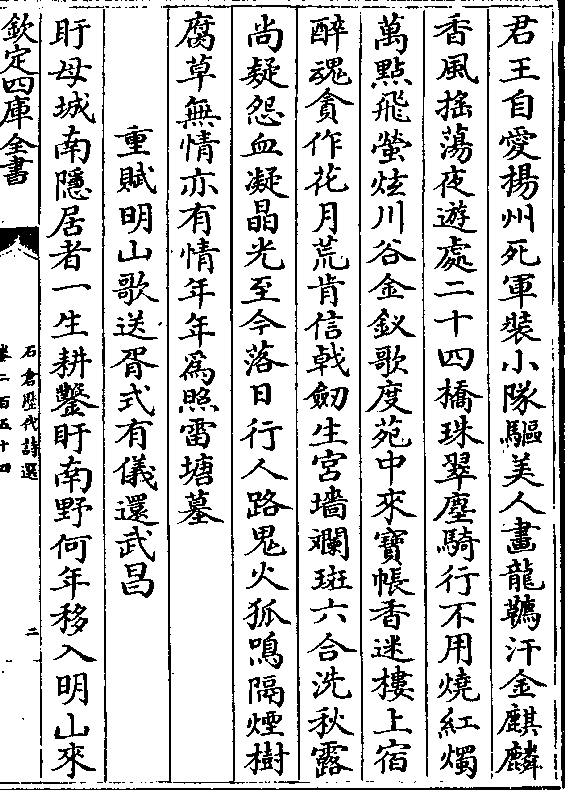 君王自愛揚州死軍裝小隊驅美人畫龍韉汗金麒麟
香風搖蕩夜遊處二十四橋珠翠塵騎行不用燒紅燭
萬點飛螢炫川谷金釵歌度苑中來寶帳香迷樓上宿
醉魂貪作花月荒肯信㦸劒生宮墻斕斑六合洗秋露
尚疑怨血凝晶光至今落日行人路鬼火狐鳴隔煙樹
腐草無情亦有情年年爲照雷塘墓
重賦明山歌送胥式有儀還武昌
盱母城南隱居者一生耕鑿盱南野何年移入明山來
欽定四庫全書
石倉歷代詩選
卷二百五十四
二